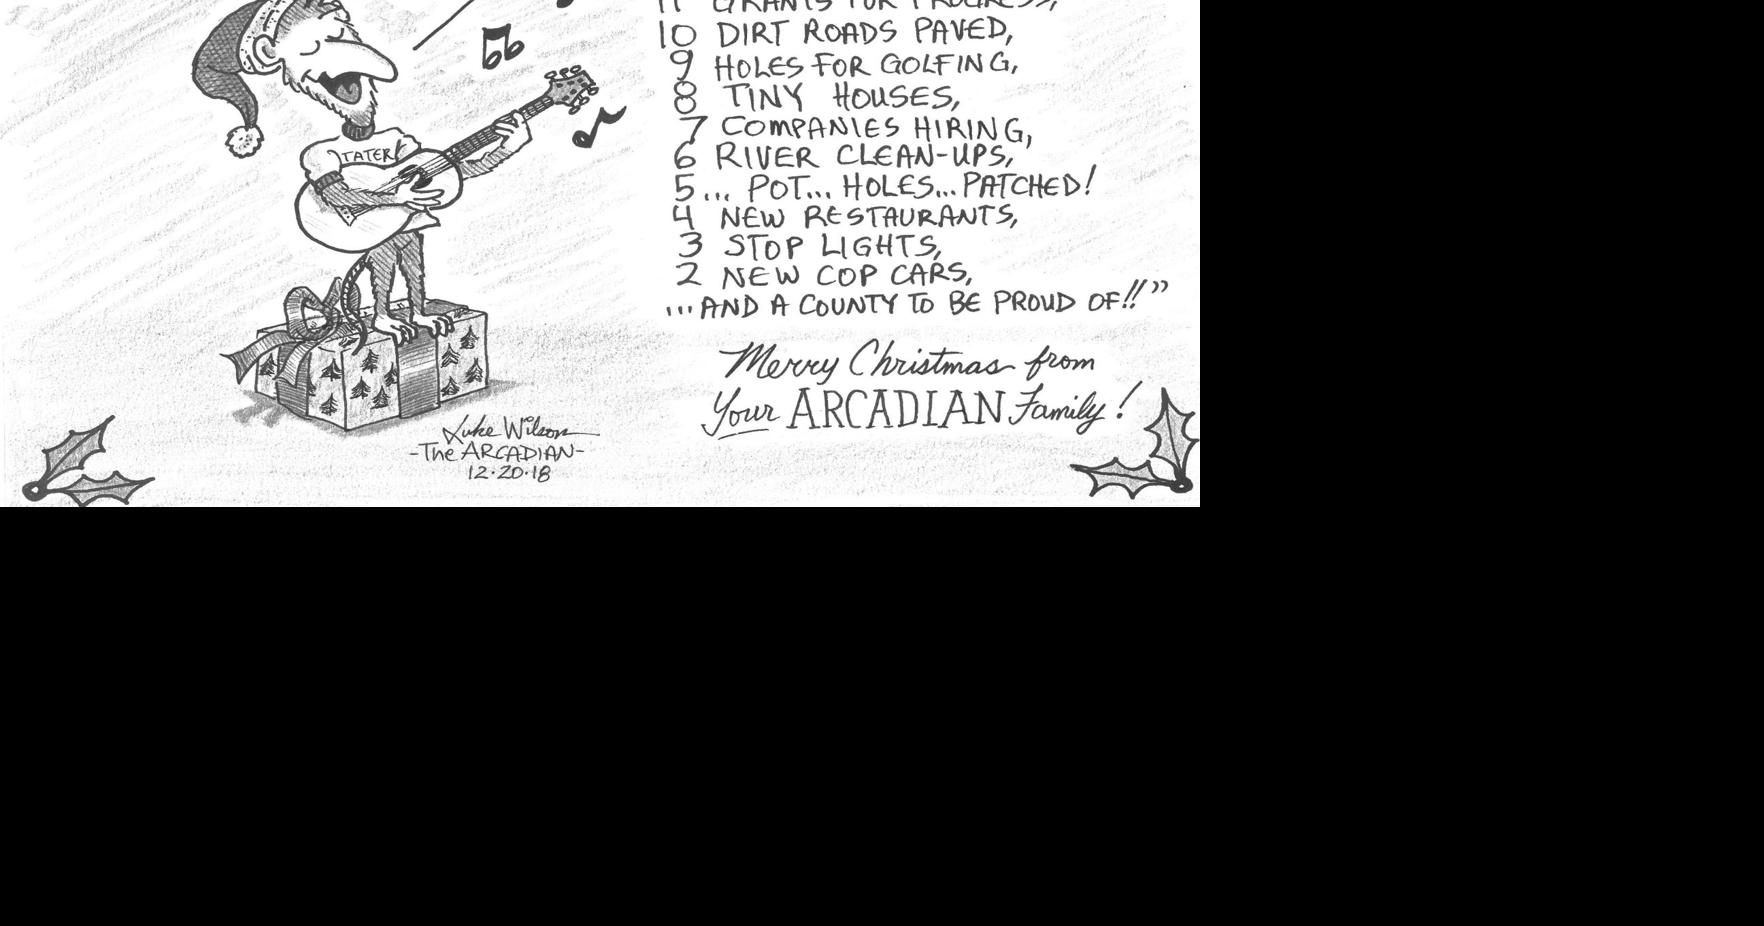 11 GRANTS FOR PROGRESS,
10 DIRT ROADS PAVED,
9 HOLES FOR GOLFING,
8 TINY HOUSES,
7 COMPANIES HIRING,
6 RIVER CLEAN-UPS,
5... POT... HOLES... PATCHED!
4 NEW RESTAURANTS,
3 STOP LIGHTS,
2 NEW COP CARS,
...AND A COUNTY TO BE PROUD OF!!”
TATER
Merry Christmas from
Your ARCADIAN Family!
Luke Wilson
-The ARCADIAN-
12.20.18